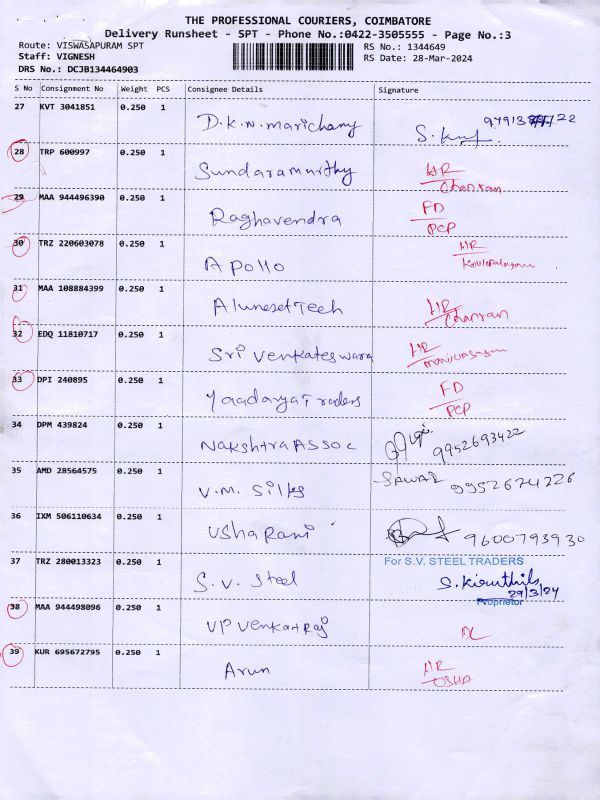 THE PROFESSIONAL COURIERS, COIMBATORE
Delivery Runsheet - SPT - Phone No.:0422-3505555 - Page No.:3
Route: VISWASAPURAM SPT RS No.: 1344649
Staff: VIGNESH RS Date: 28-Mar-2024
DRS No.: DCJB134464903
S No Consignment No Weight PCS Consignee Details Signature
27 KVT 3041851 0.250 1 D.K.N. Marichamy
28 TRP 600997 0.250 1 Sundaramurthy HR
29 MAA 944496390 0.250 1 Raghavendra FD PCP
30 TRZ 220603078 0.250 1 Apollo HR
31 MAA 108884399 0.250 1 HR
32 EDQ 11810717 0.250 1 Sri Venkateswara HR
33 DPI 240895 0.250 1 Traders FD PCP
34 DPM 439824 0.250 1 Nakshtra Assoc 9952693422
35 AMD 28564575 0.250 1 V.M. Silks 9952674226
36 IXM 506110634 0.250 1 Usha Rani 9600793930
37 TRZ 280013323 0.250 1 S.V. Steel For S.V. STEEL TRADERS
29/3/24
Proprietor
38 MAA 944498096 0.250 1 VP Venkatraj DL
39 KUR 695672795 0.250 1 Arun HR USHA